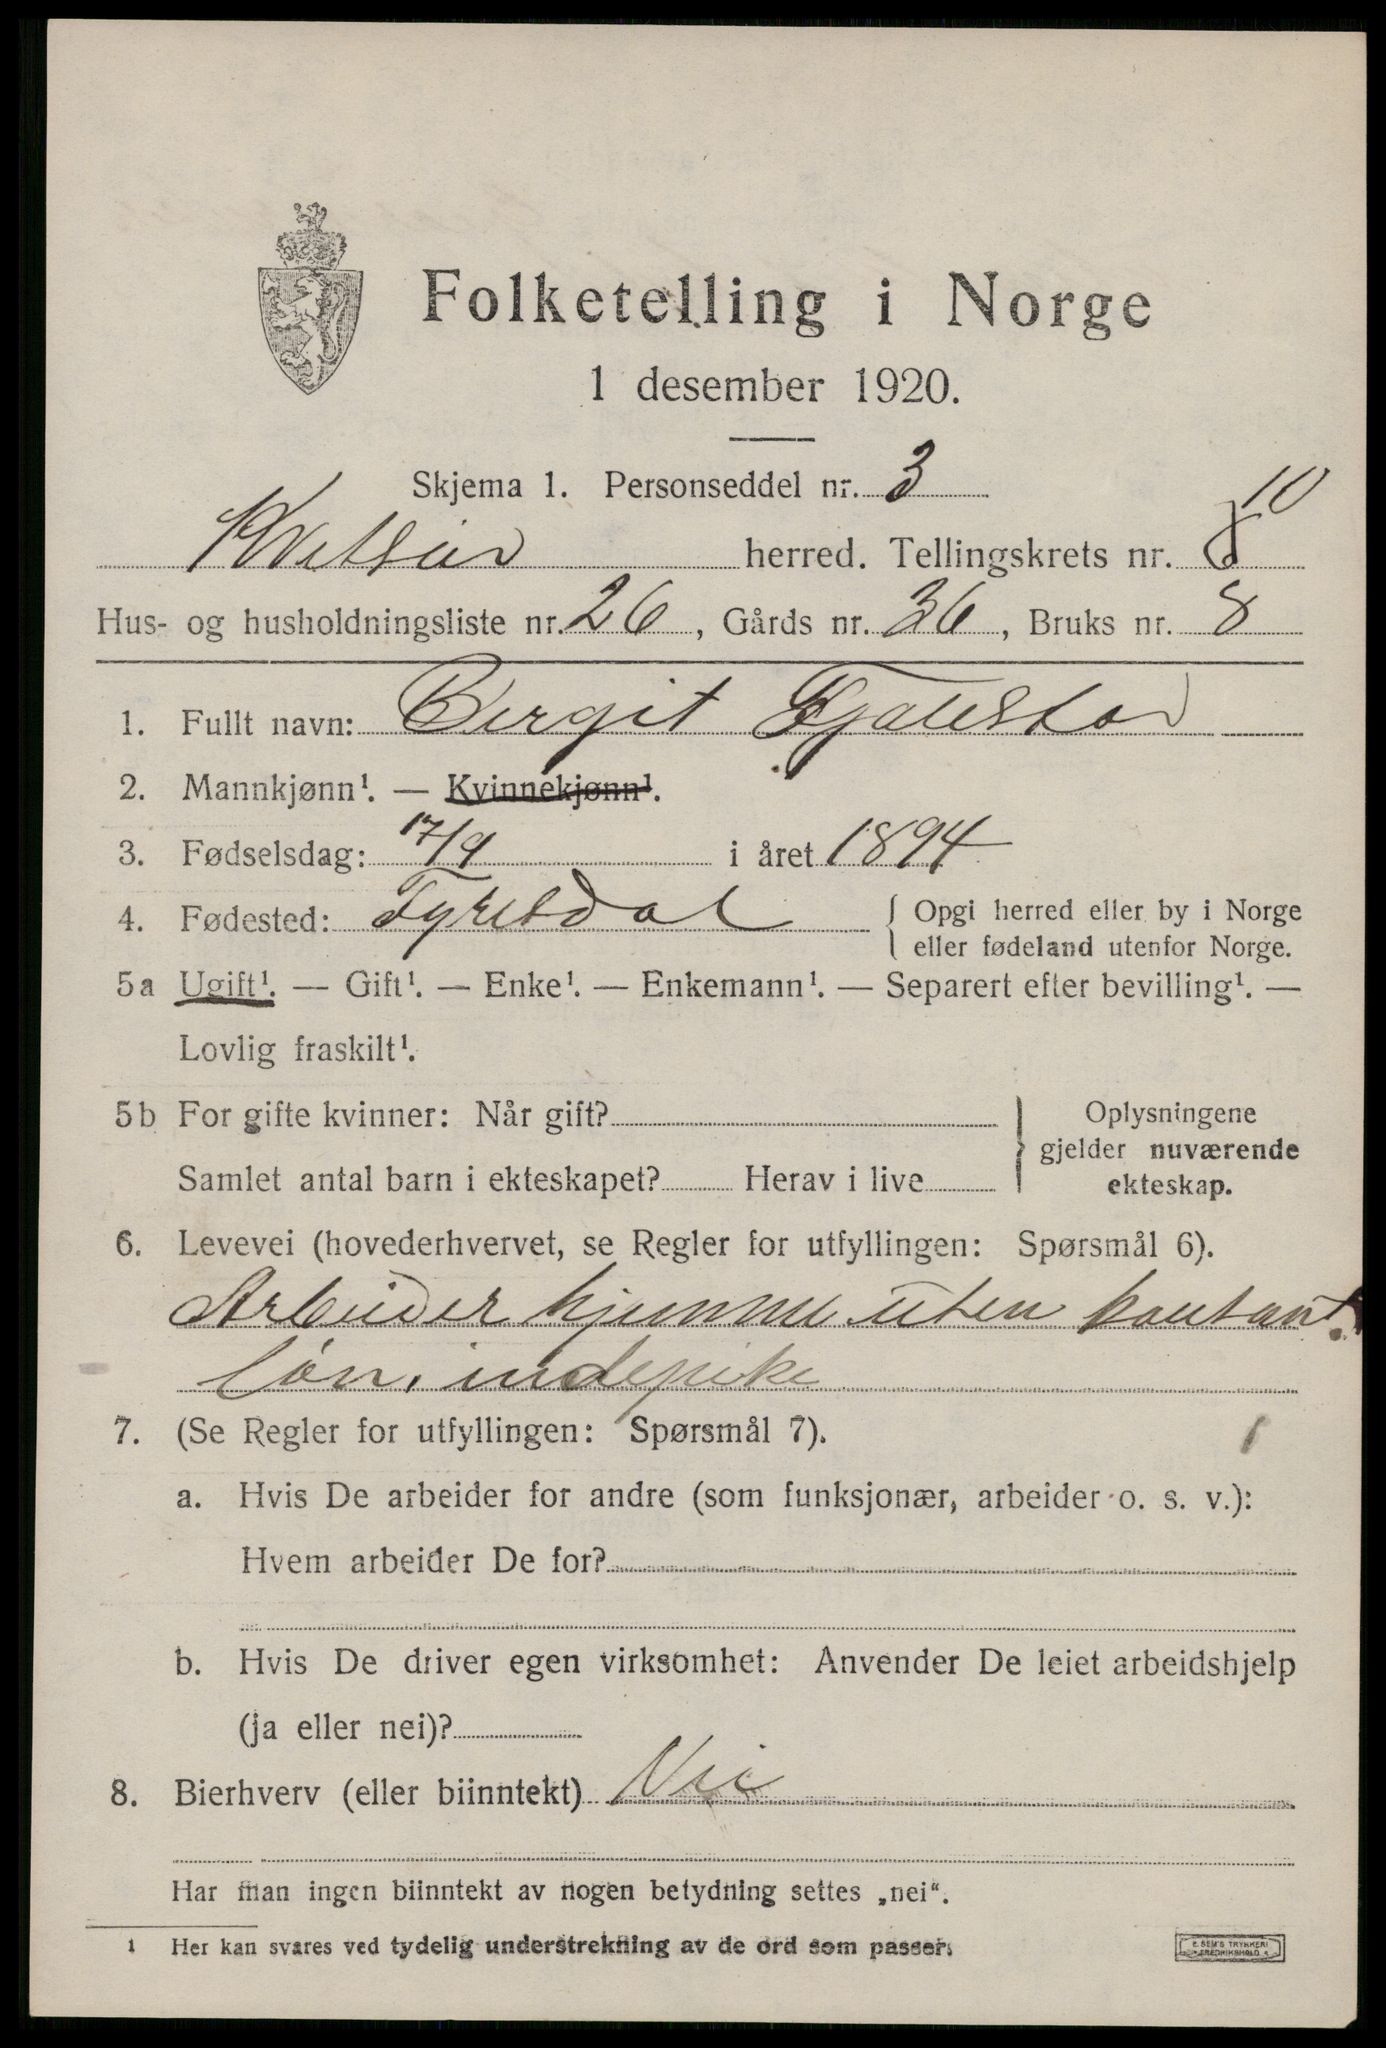 Folketelling i Norge
1 desember 1920.
Skjema 1. Personseddel nr. 3
herred. Tellingskrets nr. 8 10
Hus- og husholdningsliste nr. 26, Gårds nr. 36, Bruks nr. 8
1. Fullt navn: Birgit
2. Mannkjønn¹. — Kvinnekjønn¹.
3. Fødselsdag: 17/9 i året 1894
4. Fødested: Fyresdal { Opgi herred eller by i Norge
eller fødeland utenfor Norge.
5a Ugift¹. — Gift¹. — Enke¹. — Enkemann¹. — Separert efter bevilling¹. —
Lovlig fraskilt¹.
5b For gifte kvinner: Når gift? } Oplysningene
gjelder nuværende
Samlet antal barn i ekteskapet? Herav i live ekteskap.
6. Levevei (hovederhvervet, se Regler for utfyllingen: Spørsmål 6).
Arbeider hjemme uten kontant
løn. indepike
7. (Se Regler for utfyllingen: Spørsmål 7). 1
a. Hvis De arbeider for andre (som funksjonær, arbeider o. s. v.):
Hvem arbeider De for?
b. Hvis De driver egen virksomhet: Anvender De leiet arbeidshjelp
(ja eller nei)?
8. Bierhverv (eller biinntekt) Nei
Har man ingen biinntekt av nogen betydning settes „nei“.
1 Her kan svares ved tydelig understrekning av de ord som passer.
E. SEM'S TRYKKERI
FREDRIKSHALD